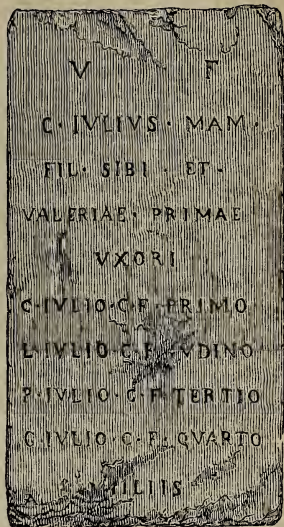 V F
C · IVLIVS · MAM ·
FIL · SIBI · ET ·
VALERIAE · PRIMAE
VXORI
C · IVLIO · C · F · PRIMO
L · IVLIO · C · F ·
P · IVLIO · C · F · TERTIO
C · IVLIO · C · F · QVARTO